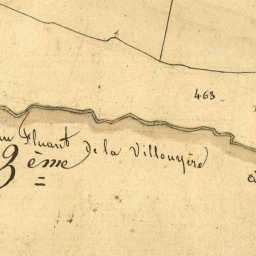 463
au Fluant de la Villouyère
3ème